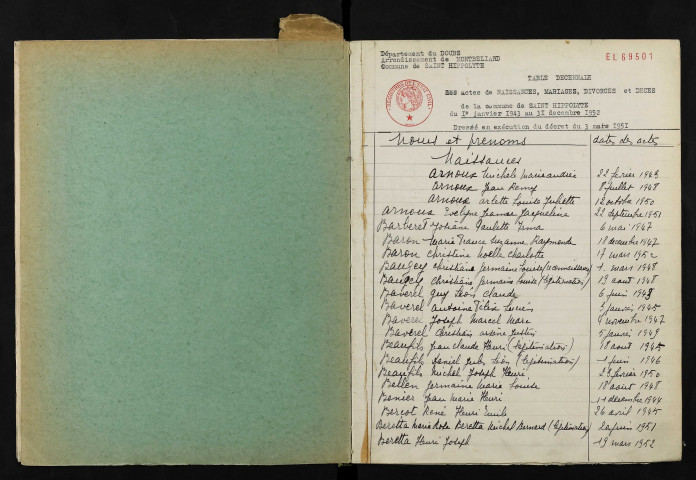 Département du DOUBS
Arrondissement de MONTBELIARD
Commune de SAINT HIPPOLYTE
EL 69501
TABLE DECENNALE
des actes de NAISSANCES, MARIAGES, DIVORCES et DECES
de la commune de SAINT HIPPOLYTE
du 1er janvier 1943 au 31 decembre 1952
Dressé en exécution du décret du 3 mars 1951
Noms et prenoms dates des actes
Naissances
Arnoux Michèle Marie andrée 22 février 1943
Arnoux Jean Remy 8 juillet 1948
Arnoux arlette Louise Juliette 12 octobre 1950
Arnoux Evelyne Jeanne Jacqueline 22 septembre 1951
Barberet Josiane Paulette Irma 6 mai 1947
Baron Marie France Suzanne Raymonde 18 decembre 1947
Baron Christine Noelle Charlotte 17 mars 1952
Baugey Christiane Germaine Louise (reconnaissance) 1 mars 1948
Baugey Christiane Germaine Louise (legitimation) 19 aout 1948
Baverel Guy Léon Claude 6 juin 1943
Baverel antoine Félix Lucien 3 janvier 1945
Baverel Joseph Marcel Marc 4 novembre 1947
Baverel Christian arsène Justin 5 janvier 1949
Beaufils Jean Claude Henri (legitimation) 18 aout 1945
Beaufils Daniel Jules Léon (legitimation) 1 juin 1946
Beaufils Michel Joseph Henri 23 février 1950
Bellen Germaine Marie Louise 18 aout 1948
Bonier Jean Marie Henri 11 decembre 1944
Bercot René Henri Emile 26 avril 1945
Beretta Marie Rose Beretta Michel Bernard (legitimation) 20 juin 1951
Beretta Henri Joseph 19 mars 1952